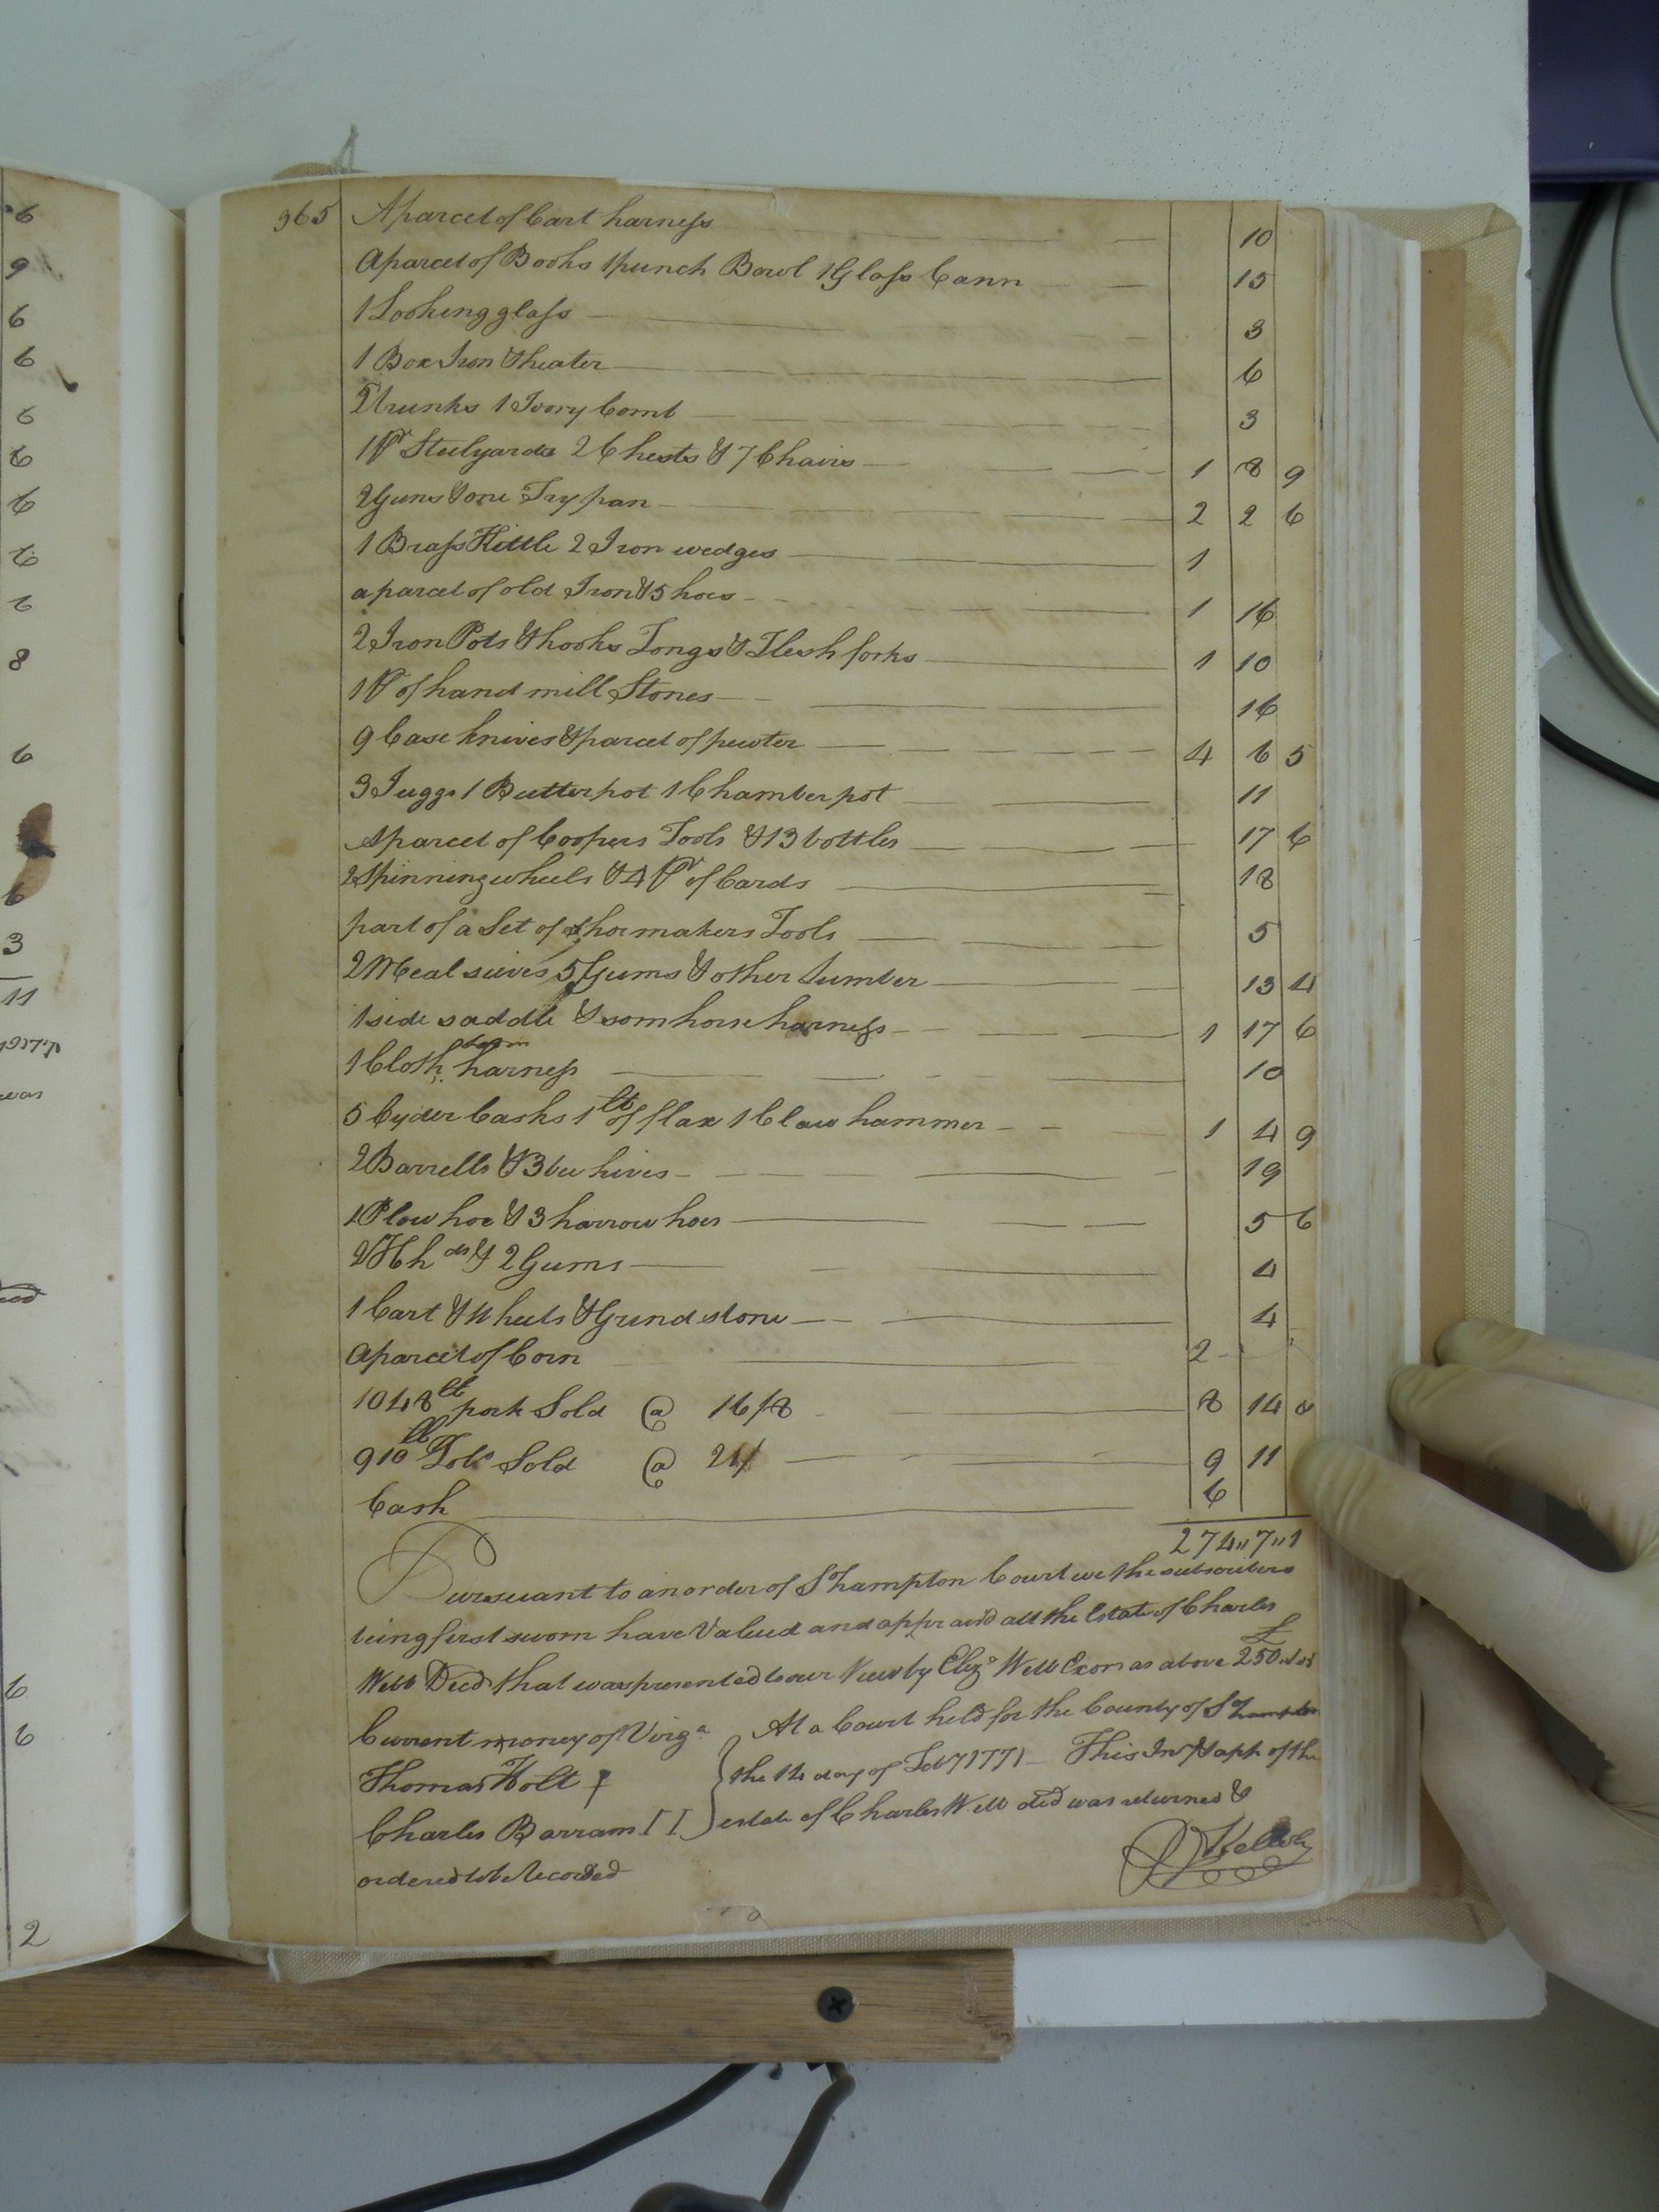 6
9
6
6
6
6
6
6
6
8
6
6
3
11
was
6
6
2
365 A parcel of Cart harness 10
A parcel of Books 1 punch Bowl 1 Glass Cann 15
1 Looking glass 3
1 Box Iron & heater 6
2 trunks 1 Ivory Comb 3
1 Pr Steelyards 2 Chests & 7 Chairs 1 8 9
2 Guns & one Fry pan 2 2 6
1 Brass Kittle 2 Iron wedges 1
a parcel of old Iron & 5 hoes 1 16
2 Iron Pots & hooks Tongs & Flesh forks 1 10
1 Pr of hand mill Stones 16
9 Case knives & parcel of pewter 4 6 5
3 Juggs 1 Butter pot 1 Chamber pot 11
A parcel of Coopers Tools & 13 bottles 17 6
2 Spinning wheels & 4 Pr of Cards 18
part of a Set of shoemakers Tools 5
2 Meal sieves 5 Gums & other Lumber 13 4
1 side saddle & som horse harness 1 17 6
1 Cloth loom harness 10
5 Cyder Casks 1 lb of flax 1 Claw hammer 1 4 9
2 Barrells & 3 bee hives 19
1 Plow hoe & 3 harrow hoes 5 6
2 Hhds & 2 Gums 4
1 Cart & Wheels & Grindstone 4
A parcel of Corn 2
1048 lb pork Sold @ 16/8 8 14 8
910 lb Tobo Sold @ 21/ 9 11
Cash 6
274 " 7 " 1
Pursuant to an order of S hampton Court we the subscribers
being first sworn have Valued and appraisd all the Estate of Charles
Webb Decd that was presented to our View by Eliza Webb Exor as above £ 250
Current money of Virga At a Court held for the County of S hampton
Thomas Holt the 14 day of Feby 1771 This Inv & aprt of the
Charles Barram estate of Charles Webb decd was returned &
ordered to be Recorded
R Kelloly